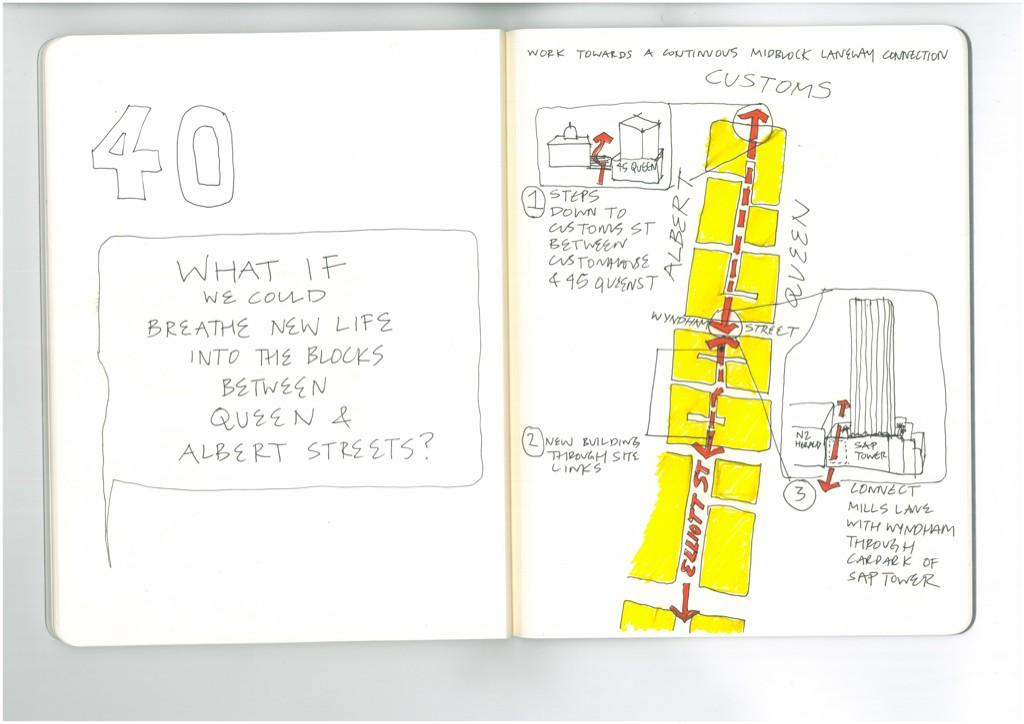 40
WHAT IF
WE COULD
BREATHE NEW LIFE
INTO THE BLOCKS
BETWEEN
QUEEN &
ALBERT STREETS?
WORK TOWARDS A CONTINUOUS MIDBLOCK LANEWAY CONNECTION
CUSTOMS
45 QUEEN
1 STEPS
DOWN TO
CUSTOMS ST
BETWEEN
CUSTOMHOUSE
& 45 QUEENST
ALBERT
QUEEN
WYNDHAM STREET
2 NEW BUILDING
THROUGH SITE
LINKS
ELLIOTT ST
NZ
HERALD
SAP
TOWER
3 CONNECT
MILLS LANE
WITH WYNDHAM
THROUGH
CARPARK OF
SAP TOWER